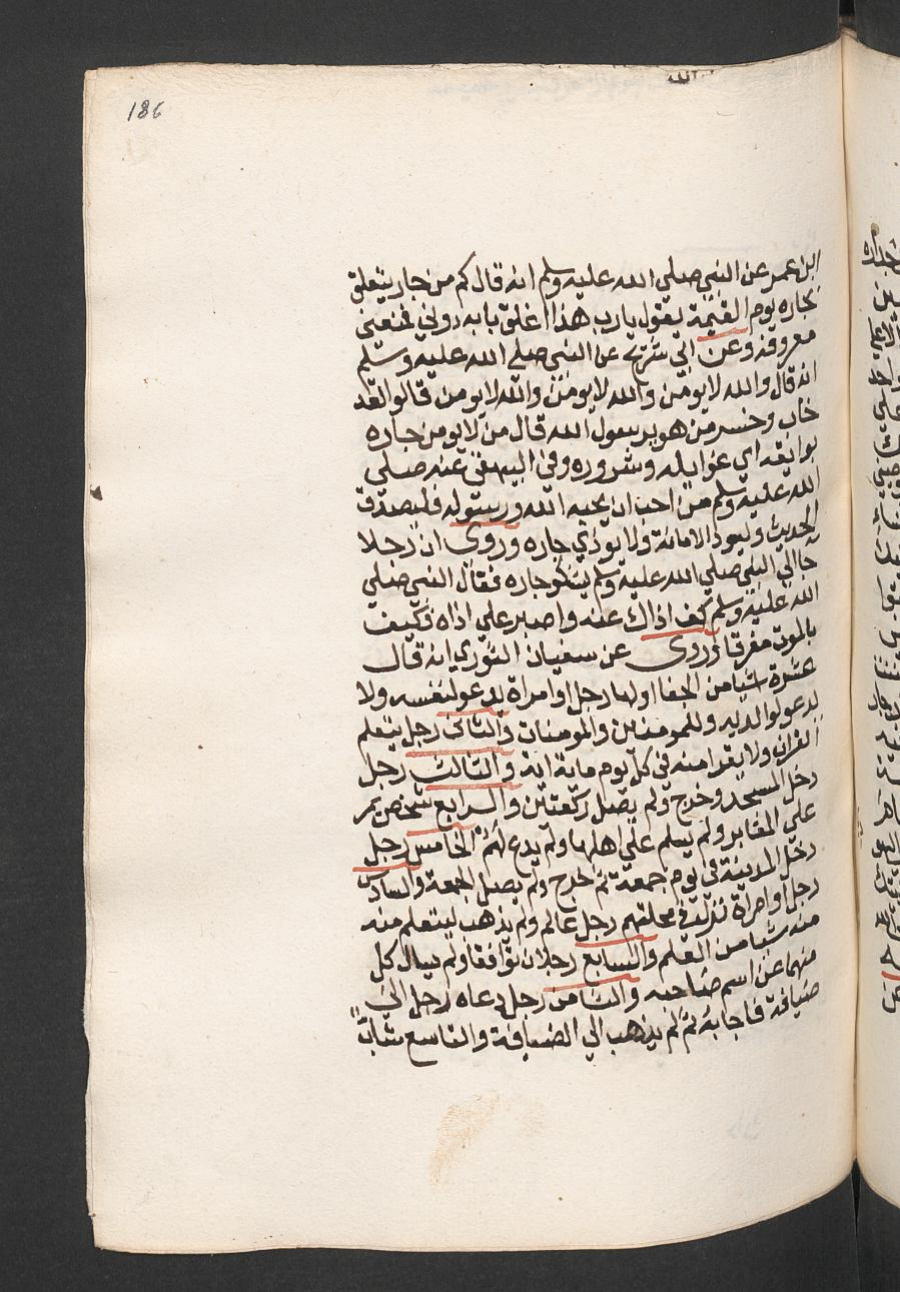 186
ابن عمر عن النبي صلي الله عليه وسلم انه قال كم من جار يتعلق
بجاره يوم القيمة يقول يارب هذا اغلق بابه دوني فمنعني
معروفه وعن ابي شريح عن النبي صلي الله عليه وسلم
انه قال والله لا يومن والله لا يومن والله لا يومن قالوا لقد
خاب وخسر من هو يرسول الله قال من لا يومن جاره
بوايقه اي غوايله وشروره وفي البيهقي عنه صلي
الله عليه وسلم من احب ان يحبه الله ورسوله فليصدق
الحديث وليود الامانة ولا يوذي جاره وروي ان رجلا
جا الي النبي صلي الله عليه وسلم يشكو جاره فقال النبي صلي
الله عليه وسلم كف اذاك عنه واصبر علي اذاه فكيف
بالموت مفرقا وروي عن سفيان الثوري انه قال
عشرة اشيا من الجفا اولها رجل او امراة يدعو لنفسه ولا
يدعو لوالديه وللمومنين والمومنات والثاني رجل يتعلم
القران ولا يقرا منه في كل يوم ماية اية والثالث رجل
دخل المسجد وخرج ولم يصل ركعتين والرابع شخص يمر
علي المقابر ولم يسلم علي اهلها ولم يدع لهم الخامس رجل
دخل المدينة في يوم جمعة ثم خرج ولم يصل الجمعة والسادس
رجل او امراة نزلت في محلتهم رجل عالم ولم يذهب ليتعلم منه
منه شيا من العلم والسابع رجلان توافقا ولم يسال كل
منهما عن اسم صاحبه والثامن رجل دعاه رجل الي
ضيافة فاجابه ثم لم يذهب الي الضيافة والتاسع شاب